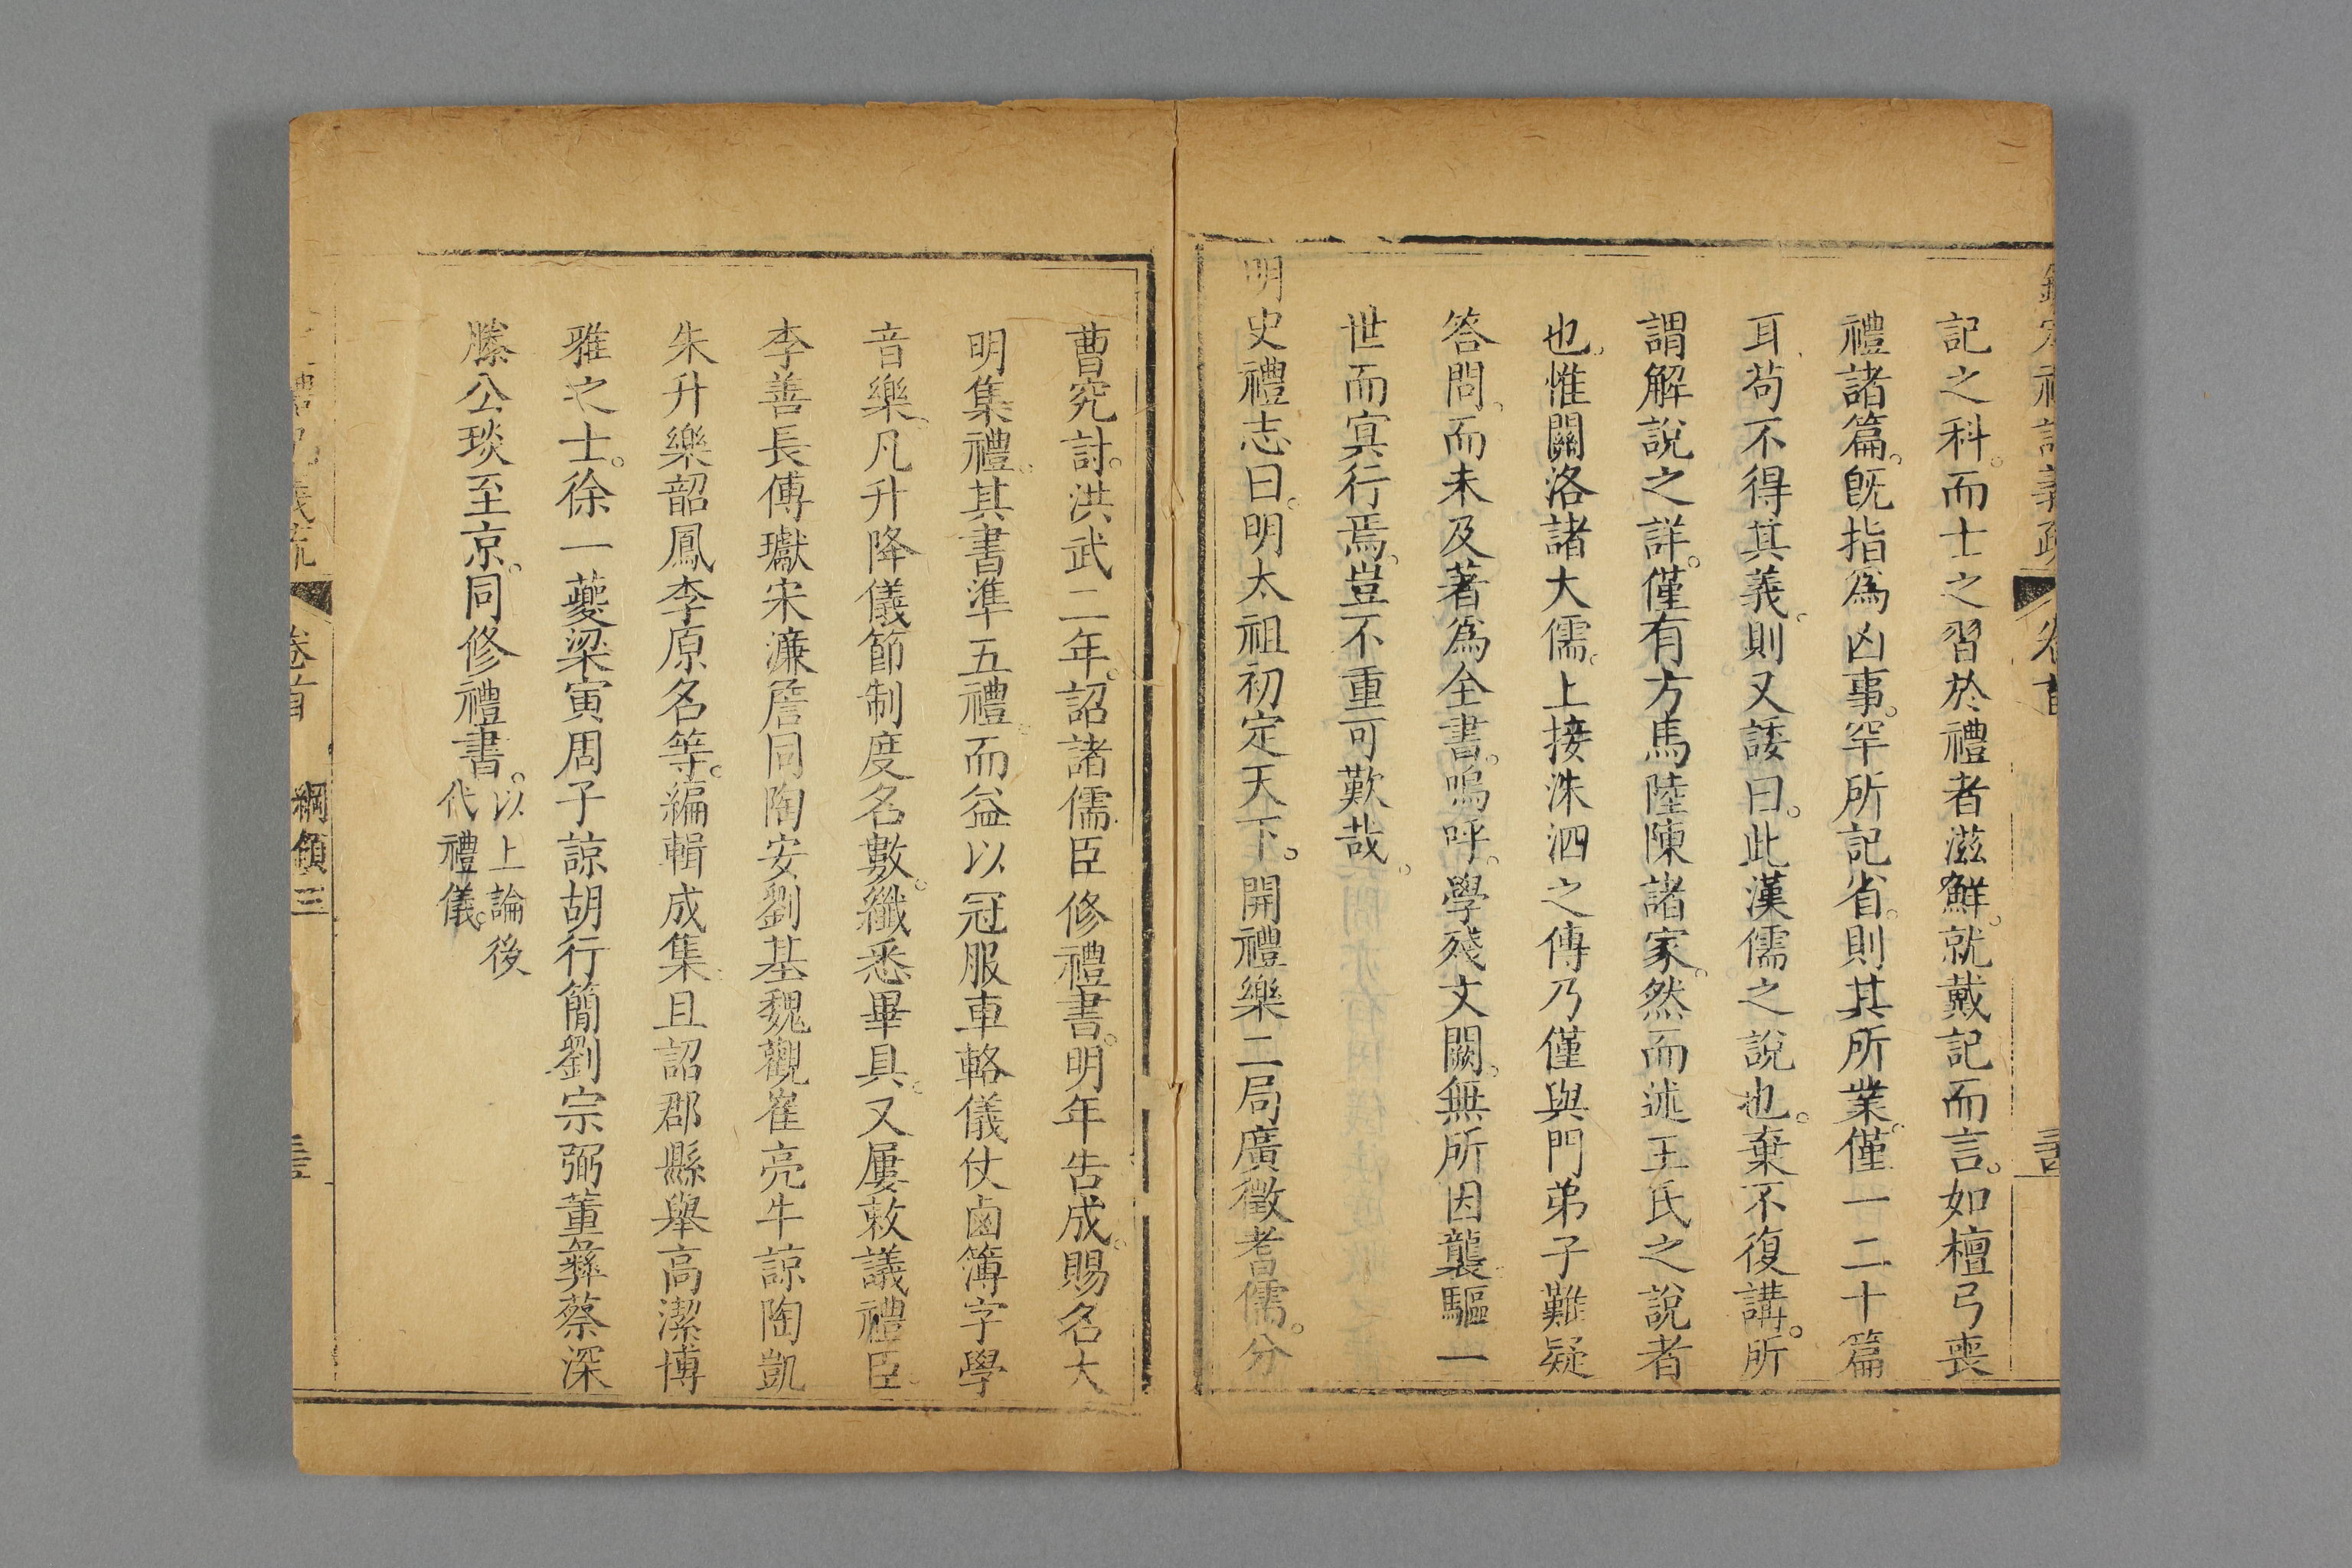 記之科。而士之習於禮者滋鮮。就戴記而言。如檀弓喪
禮諸篇。旣指爲凶事。罕所記省。則其所業。僅一二十篇
耳。苟不得其義。則又諉曰。此漢儒之說也。棄不復講。所
謂解說之詳。僅有方馬陸陳諸家。然而述王氏之說者
也。惟關洛諸大儒。上接洙泗之傳乃僅與門弟子難疑
答問。而未及著爲全書。嗚呼。學殘文闕。無所因襲。驅一
世而㝠行焉。豈不重可歎哉。
明史禮志曰。明太祖初定天下。開禮樂二局廣徵耆儒。分
曹究討。洪武二年。詔諸儒臣修禮書。明年告成。賜名大
明集禮。其書準五禮。而益以冠服車輅儀仗鹵簿字學
音樂。凡升降儀節制度名數。纖悉畢具。又屢敕議禮臣。
李善長傅瓛宋濂詹同陶安劉基魏觀崔亮牛諒陶凱
朱升樂韶鳳李原名等。編輯成集。且詔郡縣舉高潔博
雅之士。徐一夔梁寅周子諒胡行簡劉宗弼董彝蔡深
滕公琰至京。同修禮書。以上論後
代禮儀。
卷首
綱領三